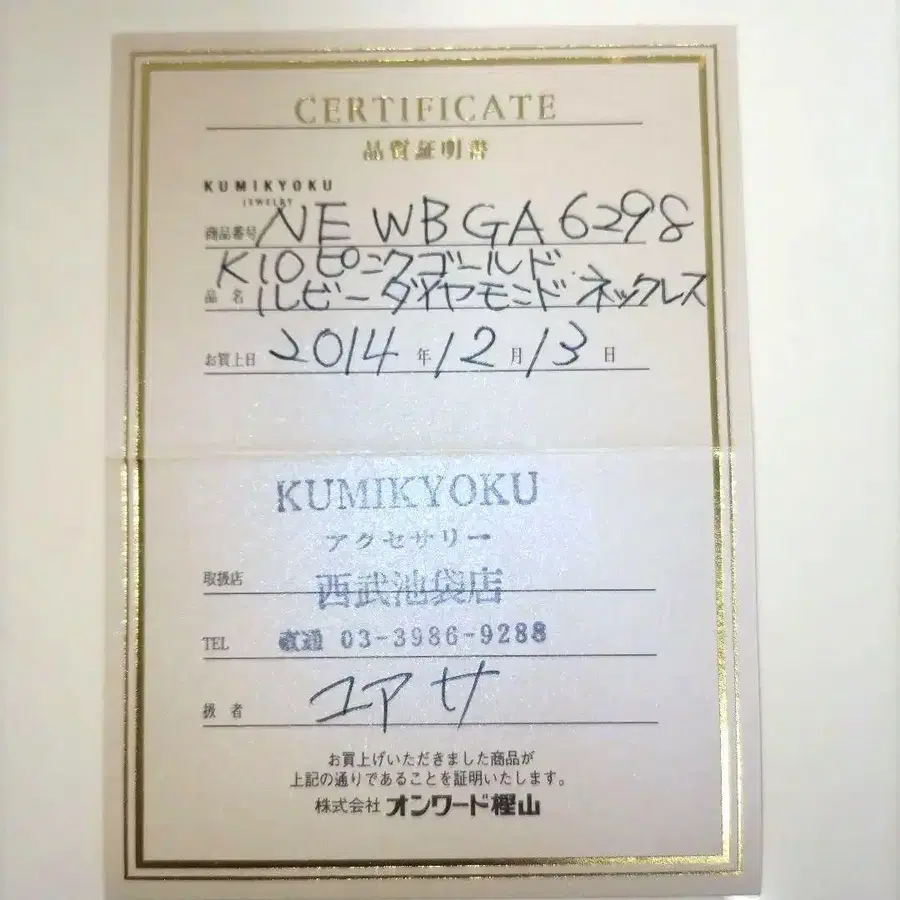 CERTIFICATE
品質証明書
KUMIKYOKU
JEWELRY
商品番号 NEWBGA6298
K10ピンクゴールド
品名 ルビーダイヤモンドネックレス
お買上日 2014年12月13日
KUMIKYOKU
アクセサリー
取扱店 西武池袋店
TEL 直通 03-3986-9288
扱者 ユアサ
お買上げいただきました商品が
上記の通りであることを証明いたします。
株式会社 オンワード樫山